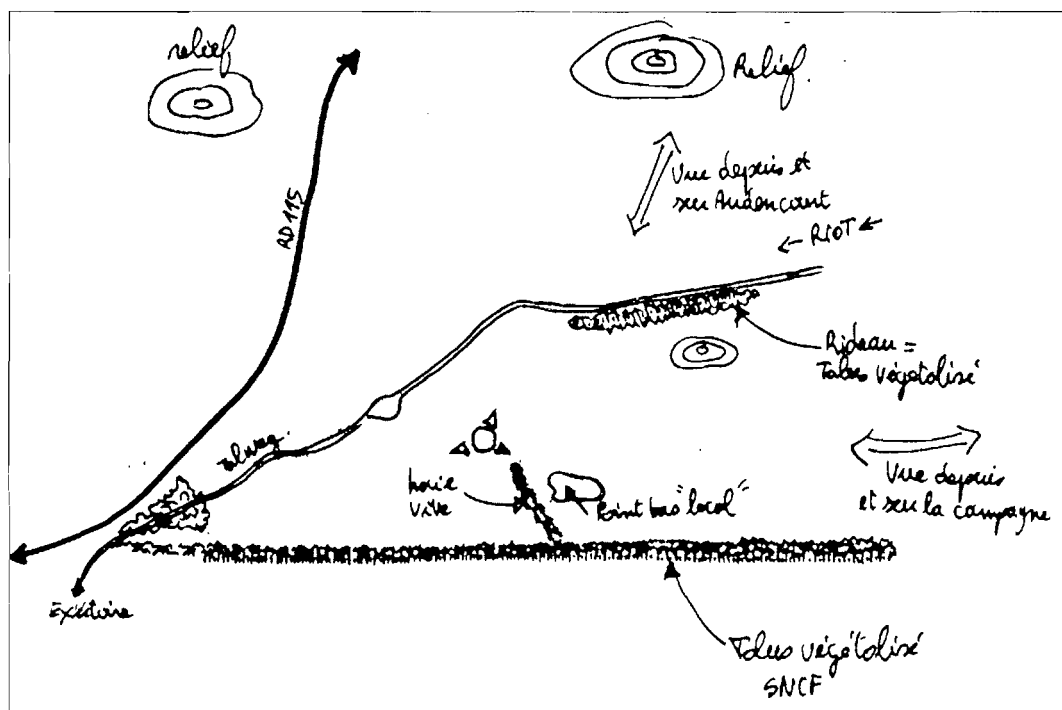 relief
Relief.
RD 115
Vue depuis et
sur Audencourt
← RIOT ←
Rideau =
Talus végétalisé
Talweg.
haie
vive
Point bas "local"
Vue depuis
et sur la campagne
Exutoire
Talus végétalisé
SNCF